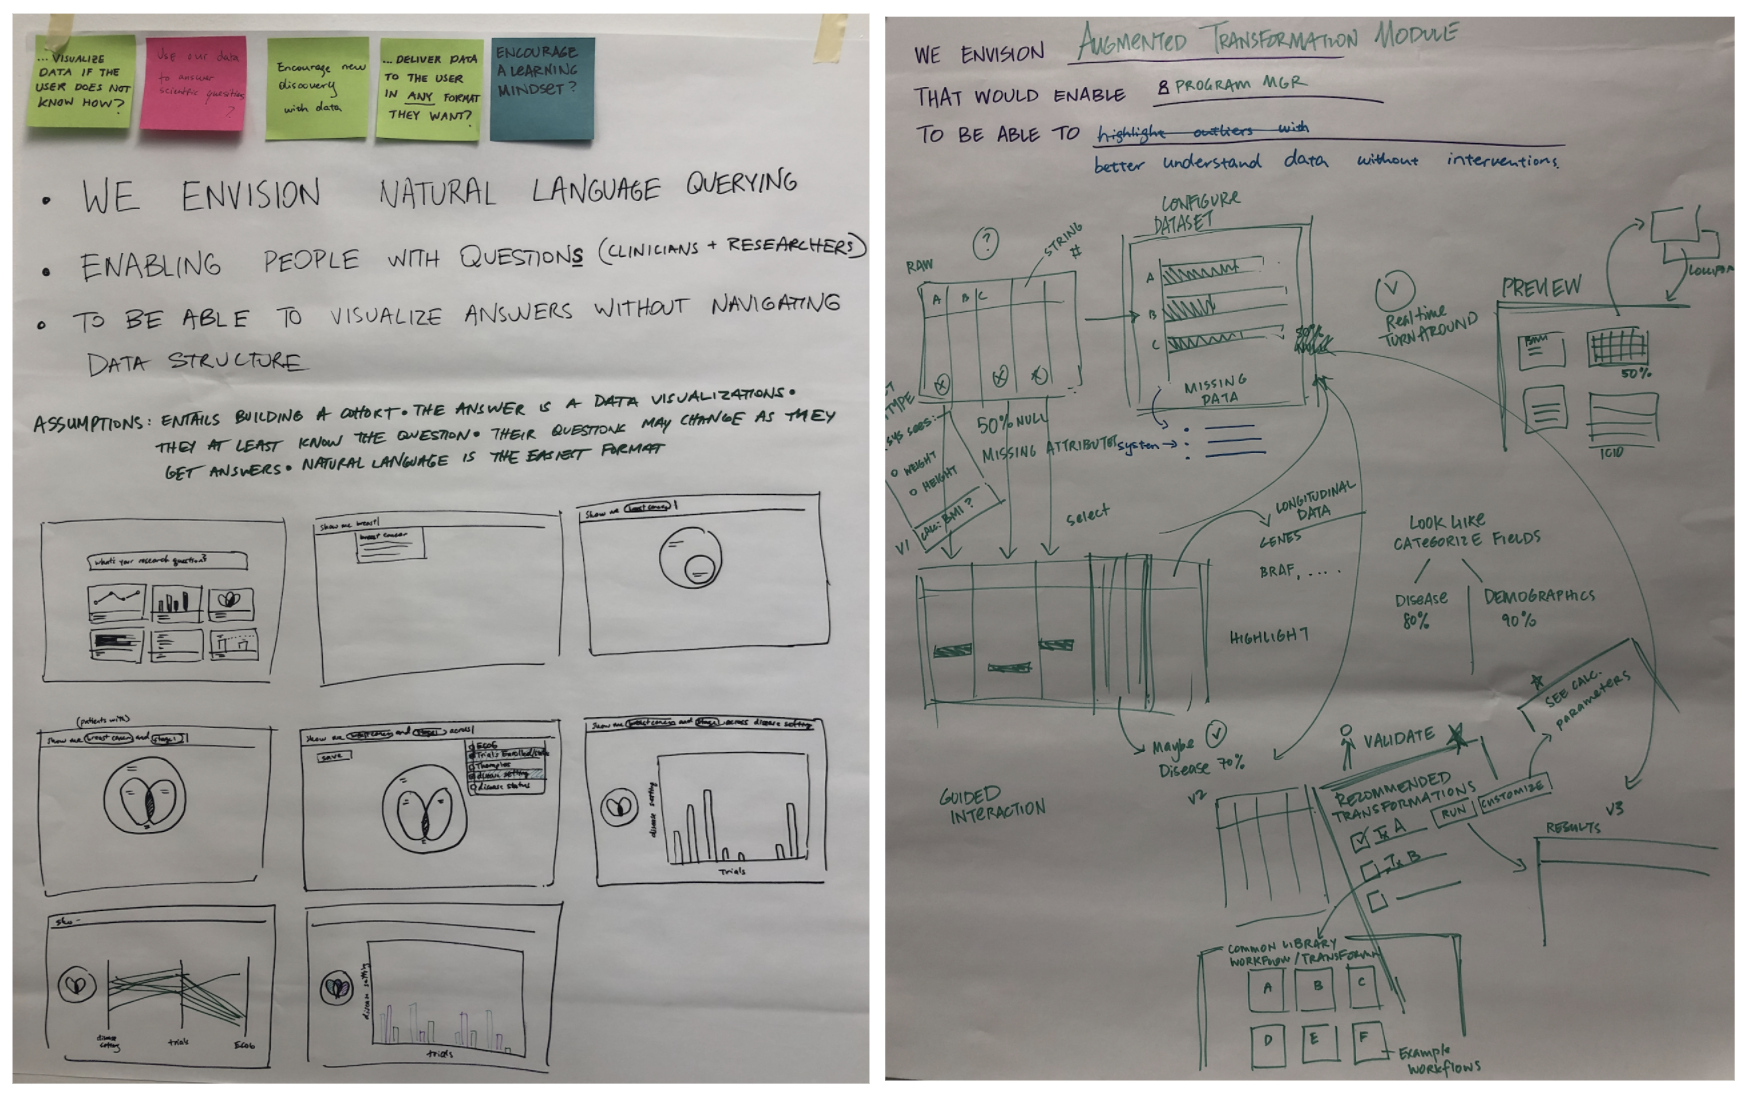 ... VISUALIZE
DATA IF THE
USER DOES NOT
KNOW HOW?
Use our data
to answer
scientific questions
?
Encourage new
discovery
with data
... DELIVER DATA
TO THE USER
IN ANY FORMAT
THEY WANT?
ENCOURAGE
A LEARNING
MINDSET?
• WE ENVISION NATURAL LANGUAGE QUERYING
• ENABLING PEOPLE WITH QUESTIONS (CLINICIANS + RESEARCHERS)
• TO BE ABLE TO VISUALIZE ANSWERS WITHOUT NAVIGATING
DATA STRUCTURE
ASSUMPTIONS: ENTAILS BUILDING A COHORT • THE ANSWER IS A DATA VISUALIZATIONS •
THEY AT LEAST KNOW THE QUESTION • THEIR QUESTIONS MAY CHANGE AS THEY
GET ANSWERS • NATURAL LANGUAGE IS THE EASIEST FORMAT
What's your research question?
Show me breast
breast cancer
Show me breast cancer
(patients with)
Show me breast cancer and stage 1
Show me breast cancer and stage 1 across
save
ECOG
Trials Enrolled
Therapies
disease setting
disease status
Show me breast cancer and stage 1 across disease setting
disease setting
Trials
Sho
disease
setting
trials
ECOG
disease setting
trials
WE ENVISION AUGMENTED TRANSFORMATION MODULE
THAT WOULD ENABLE PROGRAM MGR
TO BE ABLE TO highlight outliers with
better understand data without interventions.
RAW
?
STRING
#
A B C
CONFIGURE
DATASET
A
B
C
50%
MISSING
DATA
system →
Realtime
TURNAROUND
PREVIEW
BMI
50%
ICID
TYPE
sys sees:
WEIGHT
HEIGHT
CALC: BMI?
V1
50% NULL
MISSING ATTRIBUTES
select
LONGITUDINAL
DATA
GENES
BRAF, ....
HIGHLIGHT
LOOK LIKE
CATEGORIZE FIELDS
DISEASE
80%
DEMOGRAPHICS
90%
Maybe
Disease 70%
GUIDED
INTERACTION
V2
VALIDATE
SEE CALC.
PARAMETERS
RECOMMENDED
TRANSFORMATIONS
RUN
CUSTOMIZE
Tx A
Tx B
V3
RESULTS
COMMON LIBRARY
WORKFLOW/TRANSFORM
A B C
D E F
Example
workflows